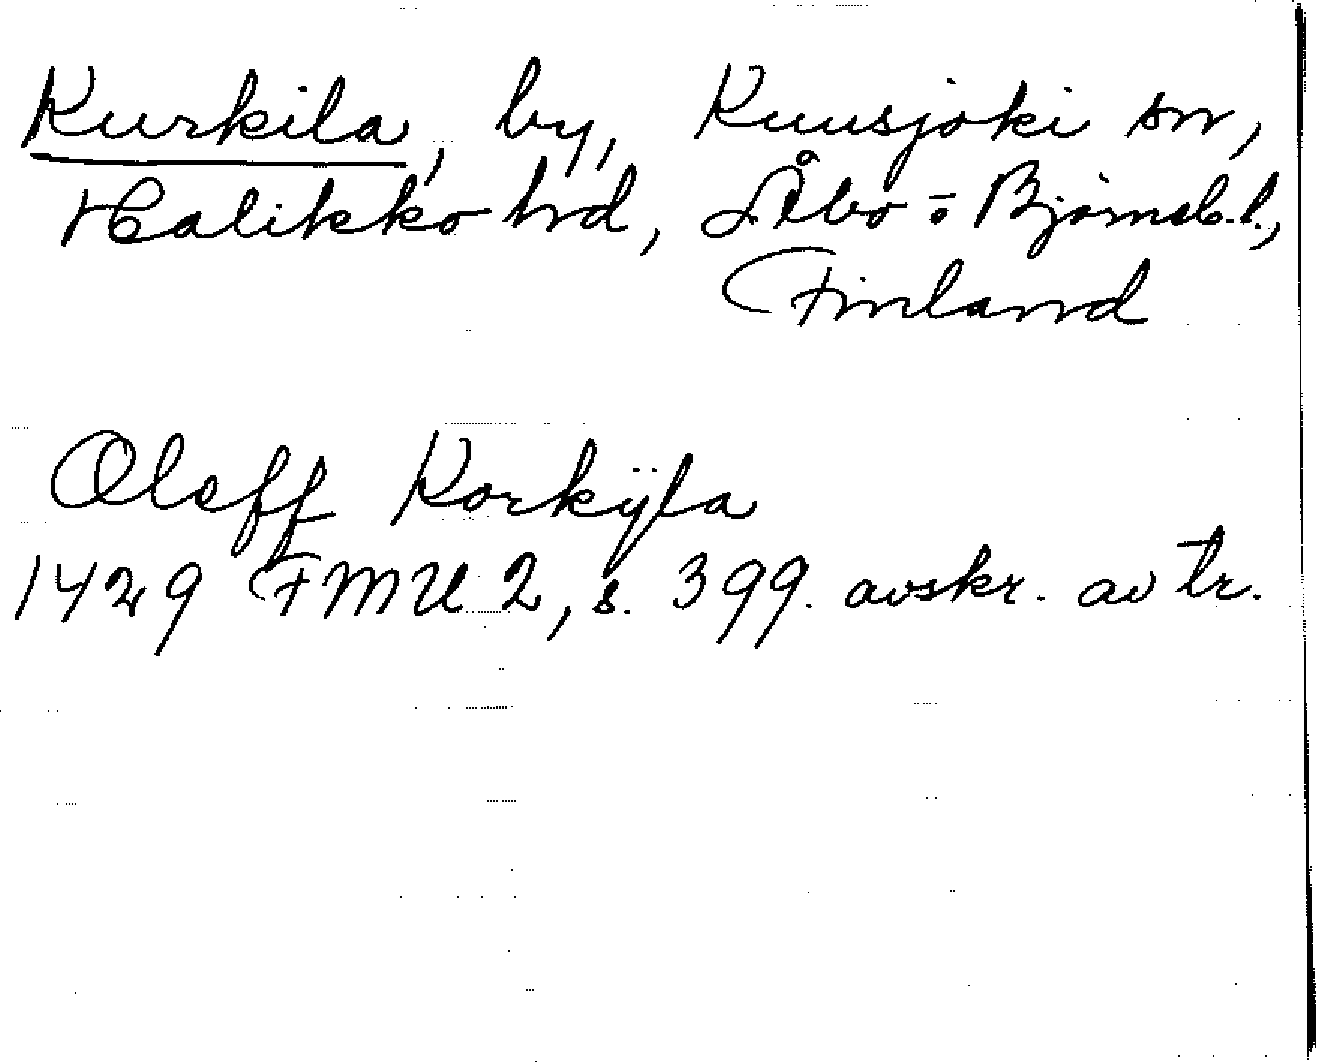 Kurkila, by, Kuusjoki sn,
Halikko hd, Åbo o Björneb. l.,
Finland
Oleff Korkÿla
1429 FMU 2, s. 399. avskr. av tr.